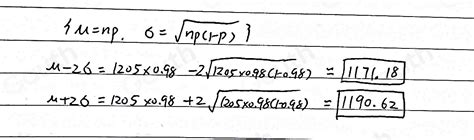 { μ=np, σ=√np(1-p) }
μ-2σ = 1205×0.98 -2√1205×0.98(1-0.98) = 1171.18
μ+2σ = 1205×0.98 +2√1205×0.98(1-0.98) = 1190.62